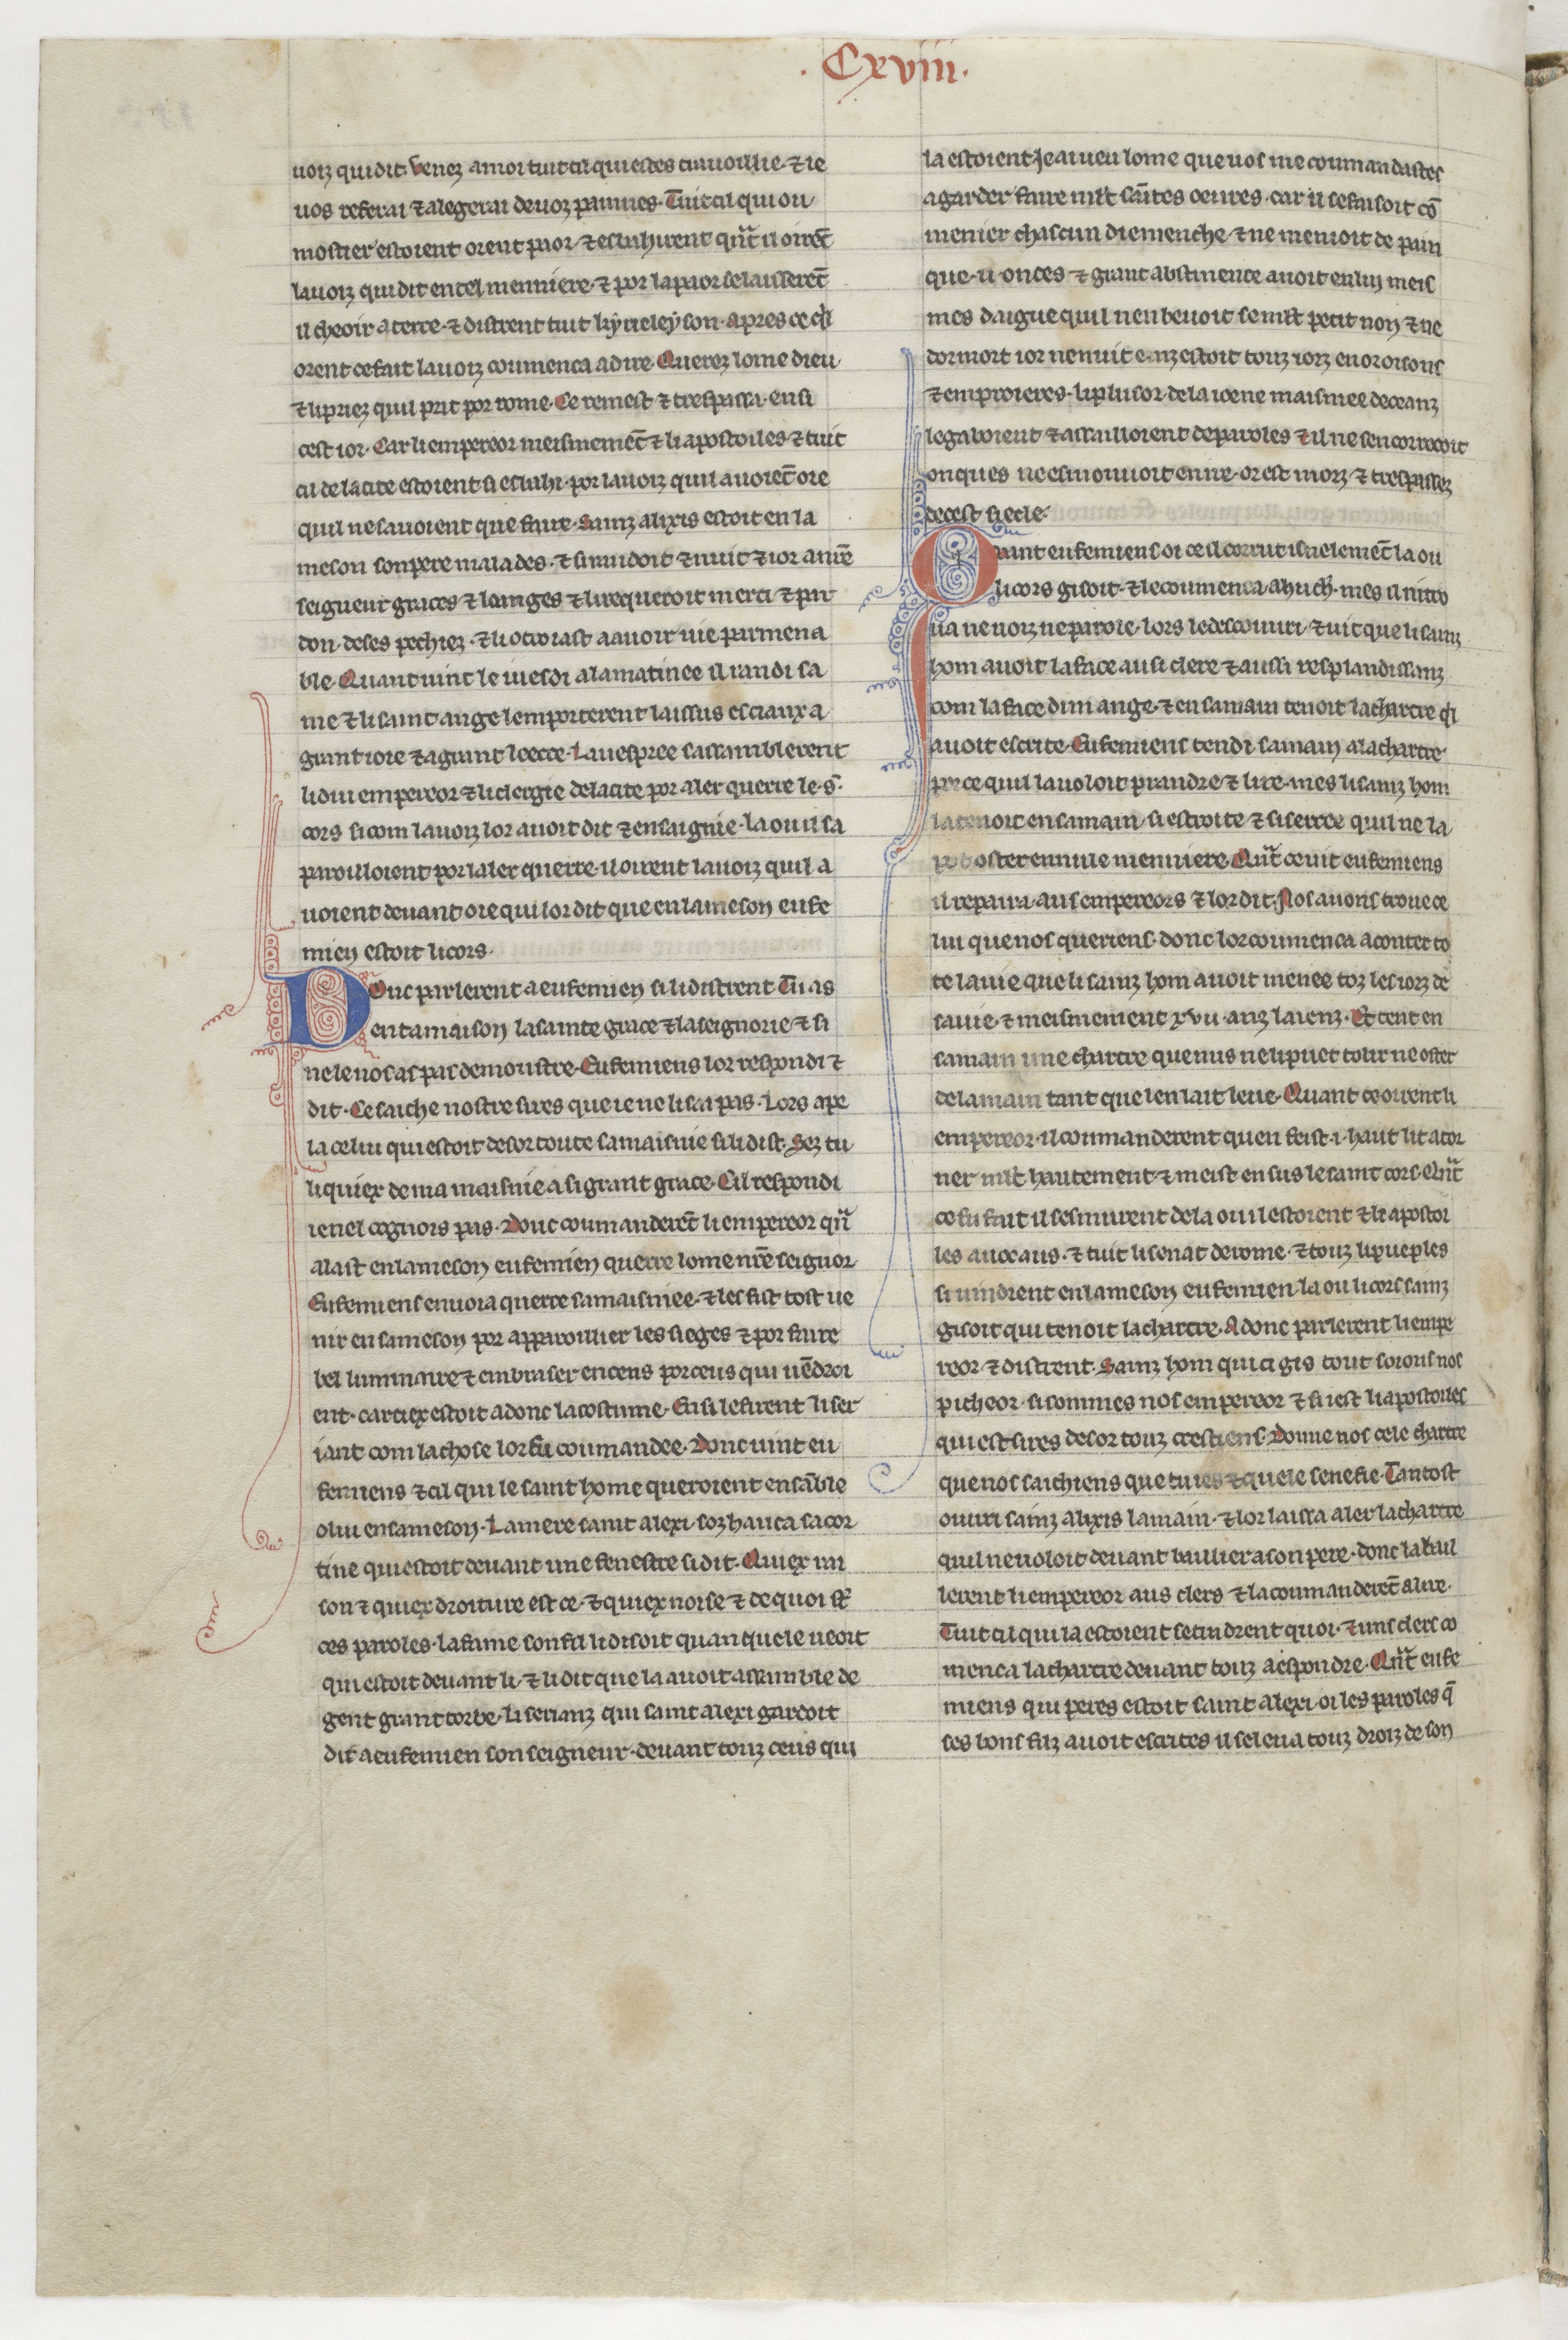 .Cxviii.
uoiz qui dit. Venez a moi tuit cil qui estes trauoillie. ⁊ ie
uos referai ⁊ alegerai de uoz painnes. Tuit cil qui ou
mostier estoient orent paor. ⁊ esbahirent qñt il oirēt
la uoiz qui dit en tel menniere. ⁊ por la paor se laisserēt
il cheoir a terre. ⁊ distrent tuit kyrieleyson. Apres ce qil
orent ce fait la uoiz coumenca a dire. Querez lome dieu
⁊ li priez quil prit por rome. Ce remest ⁊ trespassa. ensi
cest ior. Car li empereor meismemēt ⁊ li apostoiles ⁊ tuit
cil de la cite estoient si esbahi. por la uoiz quil auoiēt oie
quil ne sauoient que faire. Sainz alixis estoit en la
meson son pere malades. ⁊ si randoit ⁊ nuit ⁊ ior a nr̄e
seigneur graces ⁊ loanges ⁊ li requeroit merci ⁊ par
don. de ses pechiez. ⁊ li otroiast a auoir uie parmena
ble. Quant uint le iuesdi a la matinee il randi sa
me ⁊ li saint ange lemporterent laissus es ciaux a
grant ioie ⁊ a grant leece. La uespree sassamblerent
li dui empereor ⁊ li clergie de la cite por aler querre le .s.
cors si com la uoiz lor auoit dit ⁊ ensaignie. la ou il sa
paroilloient por laler querre. il oirent la uoiz quil a
uoient deuant oie qui lor dit que en la meson eufe
mien estoit li cors.
Donc parlerent a eufemien si li distrent Tu as
en ta maison la sainte grace ⁊ la seignorie ⁊ si
ne le nos as pas demoustre. Eufemiens lor respondi ⁊
dit. Ce saiche nostre sires que ie ne li sai pas. Lors ape
la celui qui estoit desor toute sa maisnie si li dist. Sez tu
li quiex de ma maisnie a si grant grace. Cil respondi
ie nel cognois pas. Donc coumanderēt li empereor qn̄
alast en la meson eufemien querre lome nr̄e seignor
Eufemiens enuoia querre sa maisniee. ⁊ les fist tost ue
nir en sa meson por apparoillier les sieges ⁊ por faire
bel luminaire ⁊ embraser encens por ceus qui uēdroi
ent. car tiex estoit adonc la costume. Ensi le firent li ser
iant com la chose lor fu coumandee. Donc uint eu
femiens ⁊ cil qui le saint home queroient ensāble
o lui en sa meson. La mere saint alexi. soz hauca sa cor
tine qui estoit deuant une fenestre si dit. Quiex rai
son ⁊ quiex droiture est ce. ⁊ quiex noise ⁊ de quoi st̄
ces paroles. la fame son fil li disoit quan quele ueoit
qui estoit deuant li. ⁊ li dit que la auoit assamble de
gent grant torbe. li serianz qui saint alexi gardoit
dit a eufemien son seigneur. deuant touz ceus qui
la estoient Je ai ueu lome que uos me coumandastes
a garder faire ml̄t sāites oeures. car il se faisoit cō
menier chascun diemenche. ⁊ ne meniot de pain
que .ii. onces ⁊ grant abstinence auoit en lui meis
mes daigue quil nen beuoit se ml̄t petit non ⁊ ne
dormoit ior ne nuit enz estoit touz iorz en oroisons
⁊ en proieres. li plusor de la ioene maisniee de ceanz
le gaboient ⁊ assailloient de paroles ⁊ il ne sen corrocoit
onques ne esmouuoit en ire. or est morz ⁊ trespassez
de cest siecle.
Quant eufemiens oi ce il corrut isnelemēt la ou
li cors gisoit. ⁊ le coumenca a huch. mes il ni tro
ua ne uoiz ne parole. lors le descouuri. ⁊ uit que li sainz
hom auoit la face ausi clere ⁊ aussi resplandissanz
com la face dun ange. ⁊ en sa main tenoit la chartre qil
auoit escrite. Eufemiens tendi sa main a la chartre.
por ce quil la uoloit prandre ⁊ lire. mes li sainz hom
la tenoit en sa main. si estroite ⁊ si serree quil ne la
pot oster en nule menniere. Qn̄t ce uit eufemiens
il repaira aus empereors ⁊ lor dit. Nos auons troue ce
lui que nos queriens. donc lor coumenca a conter to
te la uie que li sainz hom auoit menee toz les iorz de
sa uie. ⁊ meismement xvii. anz laienz. Et tent en
sa main une chartre que nus ne li puet tolir ne oster
de la main tant que len lait leue. Quant ce oirent li
empereor. il coumanderent quen feist .i. haut lit ator
ner ml̄t hautement. ⁊ meist en sus le saint cors. Qn̄t
ce fu fait il sesmurent de la ou il estoient ⁊ li apostoi
les auec aus. ⁊ tuit li senat de rome. ⁊ touz li pueples
si uindrent en la meson eufemien. la ou li cors sainz
gisoit qui tenoit la chartre. Adonc parlerent li empe
reor. ⁊ distrent. Sainz hom qui ci gis tout soions nos
picheor. si sommes nos empereor ⁊ si iest li apostoiles
qui est sires desor touz crestiens. Donne nos cele chartre
que nos saichiens que tu ies ⁊ quele senefie. Tantost
ouuri sainz alixis la main. ⁊ lor laissa aler la chartre
quil ne uoloit deuant baulier a son pere. donc la bail
lerent li empereor aus clers ⁊ la coumanderēt a lire.
Tuit cil qui la estoient se tindrent quoi. ⁊ uns clers co
menca la chartre deuant touz a espondre. Qn̄t eufe
miens qui peres estoit saint alexi. oi les paroles q̄
ses bons filz auoit escrites il se leua touz droiz de son